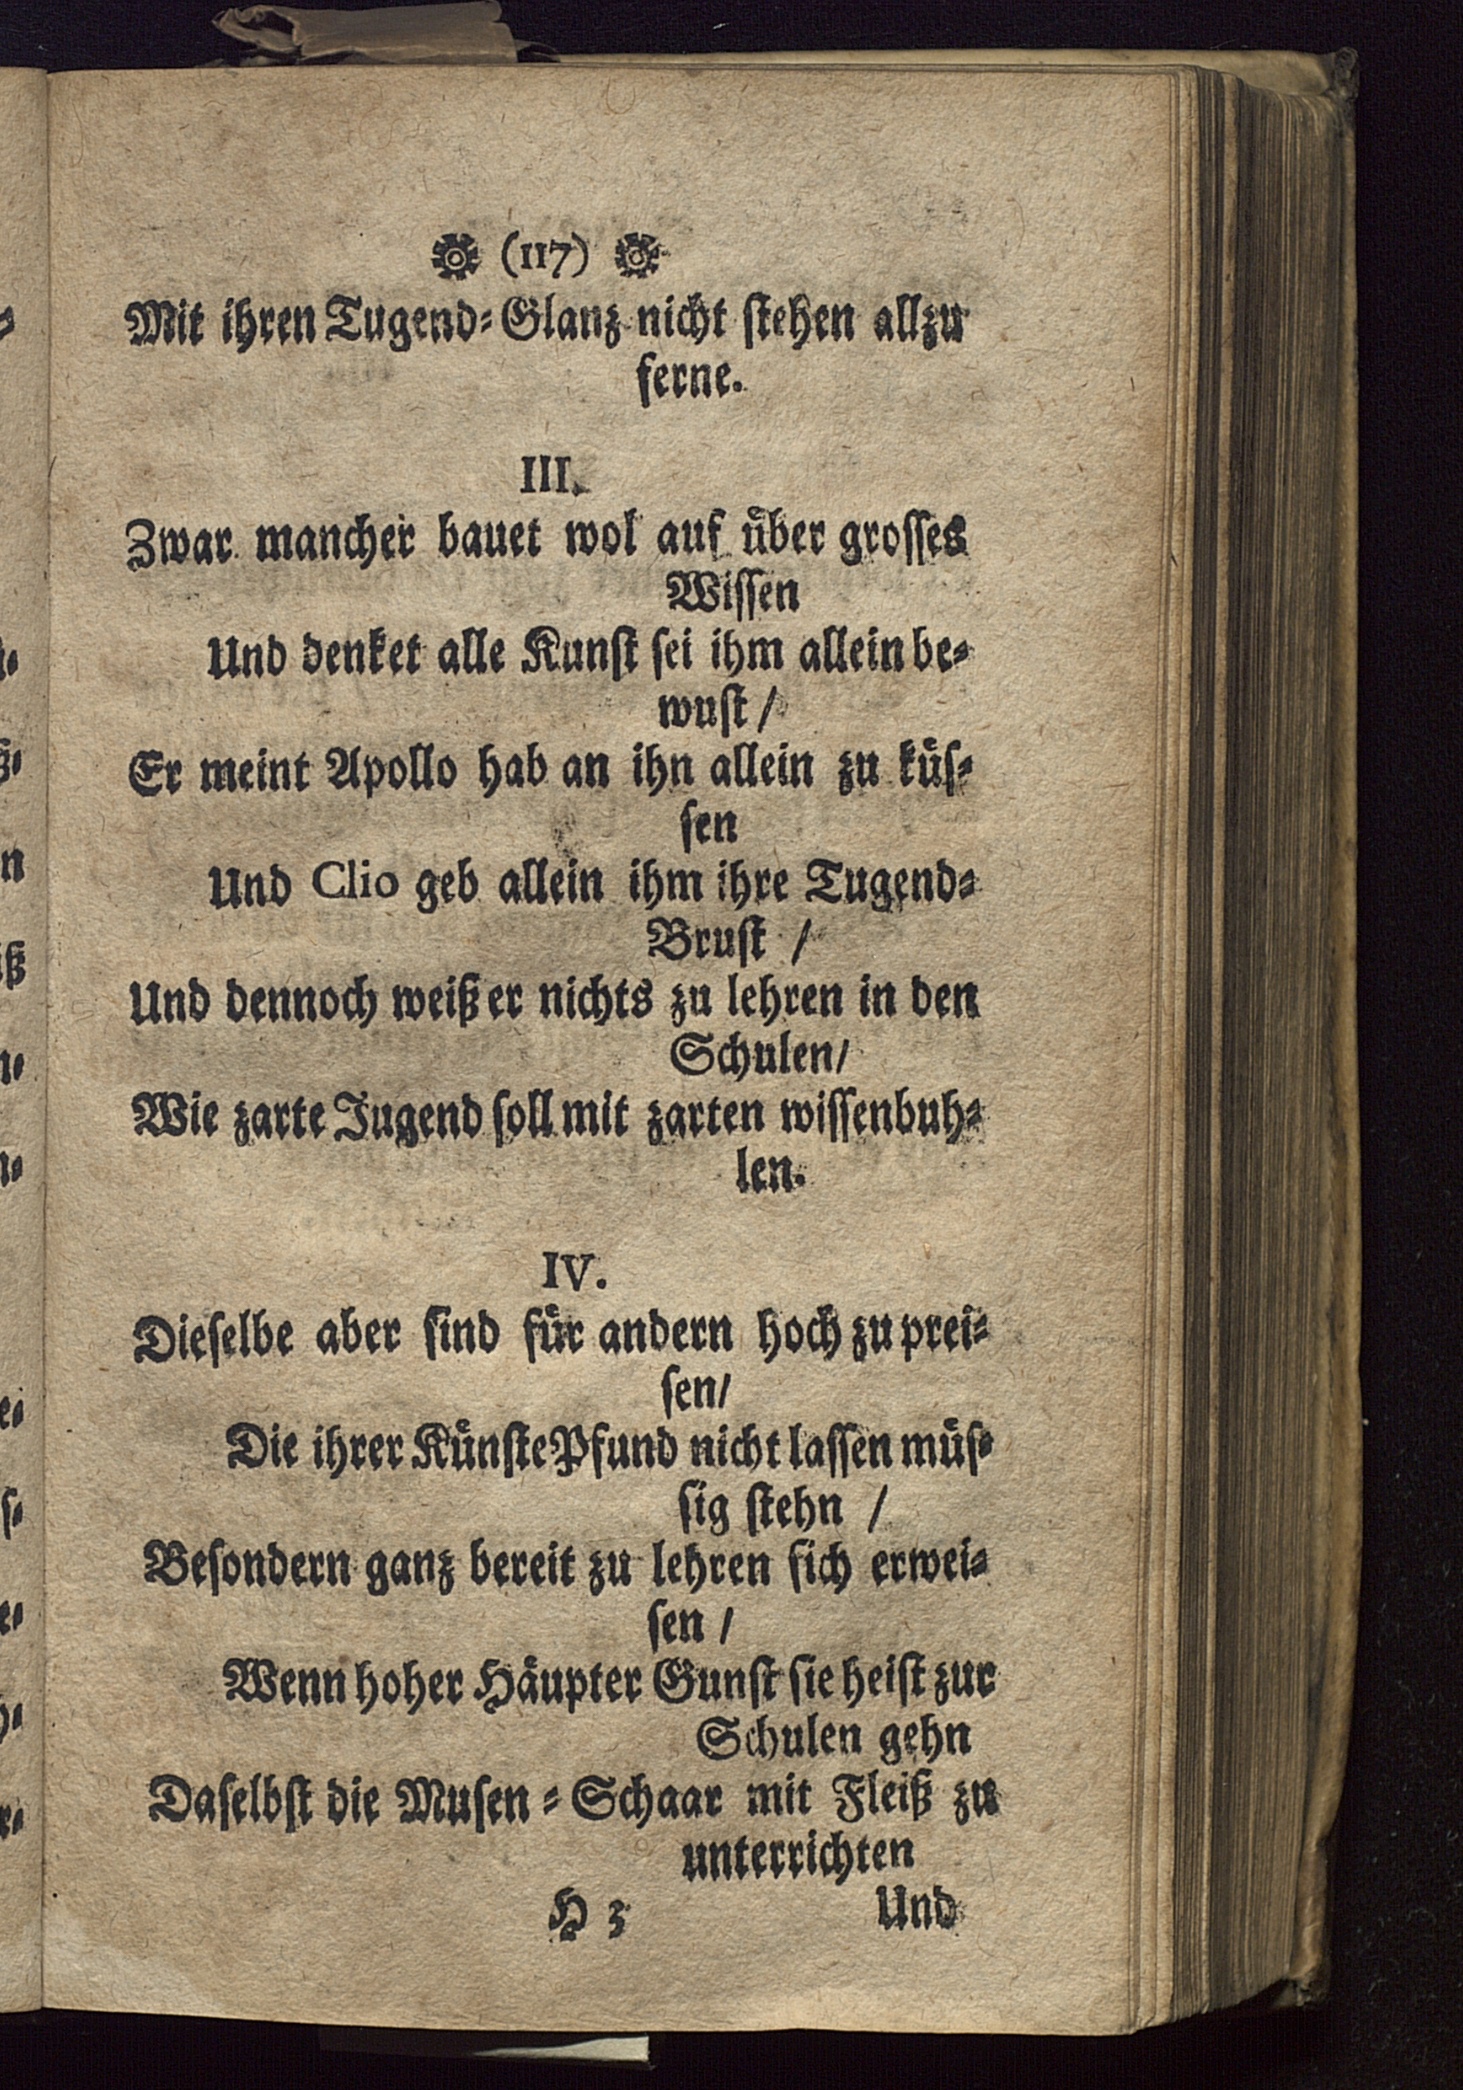 (117)
Mit ihren Tugend-Glanz nicht stehen allzu
ferne.
III.
Zwar mancher bauet wol auf über grosses
Wissen
Und denket alle Kunst sei ihm allein be-
wust /
Er meint Apollo hab an ihn allein zu küs-
sen
Und Clio geb allein ihm ihre Tugend-
Brust /
Und dennoch weiß er nichts zu lehren in den
Schulen/
Wie zarte Jugend soll mit zarten wissen buh-
len.
IV.
Dieselbe aber sind für andern hoch zu prei-
sen/
Die ihrer Künste Pfund nicht lassen müs-
sig stehn /
Besondern ganz bereit zu lehren sich erwei-
sen /
Wenn hoher Häupter Gunst sie heist zur
Schulen gehn
Daselbst die Musen-Schaar mit Fleiß zu
unterrichten
H 3 Und